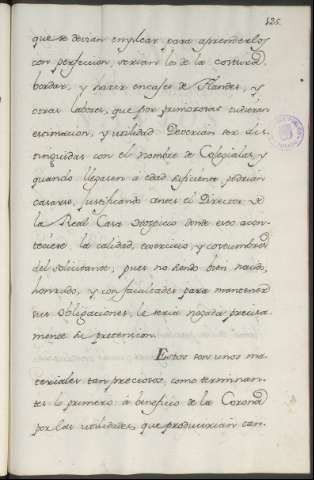 125.
que se devian emplear para aprenderlos
con perfeccion, serian los de la costura,
bordar, y hacer encages de Flandes, y
otras labores, que por primorosas tuviesen
estimacion, y utilidad. Deverian ser dis-
tinguidas con el nombre de Colegialas, y
quando llegasen à edad suficiente podrian
casarse, justificando antes el Director de
la Real Casa Ospicio donde esto acon-
teciere la calidad, exercicio, y costumbres
del solicitante, pues no siendo bien nacido,
honrado, y con facultades para mantener
sus obligaciones, le seria negada precisa-
mente su pretencion.
Estos son unos ma-
teriales tan preciosos, como terminan-
tes lo primero à beneficio de la Corona
por las utilidades, que producirian tan-